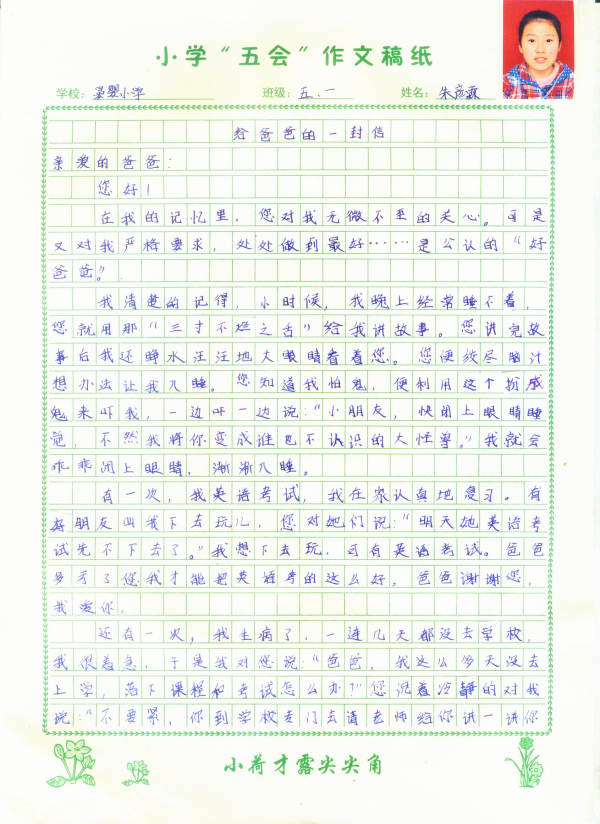 小学“五会”作文稿纸
学校：婴小学 班级：五.一 姓名：朱彦霖
给爸爸的一封信
亲爱的爸爸：
您好！
在我的记忆里，您对我无微不至的关心。可是
又对我严格要求，处处做到最好……是公认的“好
爸爸”。
我清楚的记得，小时候，我晚上经常睡不着，
您就用那“三寸不烂之舌”给我讲故事。您讲完故
事后我还睁水汪汪地大眼睛看着您。您便绞尽脑汁
想办法让我入睡。您知道我怕鬼，便利用这个扮成
鬼来吓我，一边吓一边说：“小朋友，快闭上眼睛睡
觉，不然我将你变成谁也不认识的大怪兽。”我就会
乖乖闭上眼睛，渐渐入睡。
有一次，我英语考试，我在家认真地复习。有
好朋友叫我下去玩儿，您对她们说：“明天她英语考
试先不下去了。”我想下去玩，可有英语考试。爸爸
多亏了您我才能把英语考的这么好。爸爸谢谢您，
我爱你。
还有一次，我生病了，一连几天都没去学校，
我很着急，于是我对您说：“爸爸，我这么多天没去
上学，落下课程和考试怎么办？”您沉着冷静的对我
说：“不要紧，你到学校专门去请老师给你讲一讲你
小荷才露尖尖角